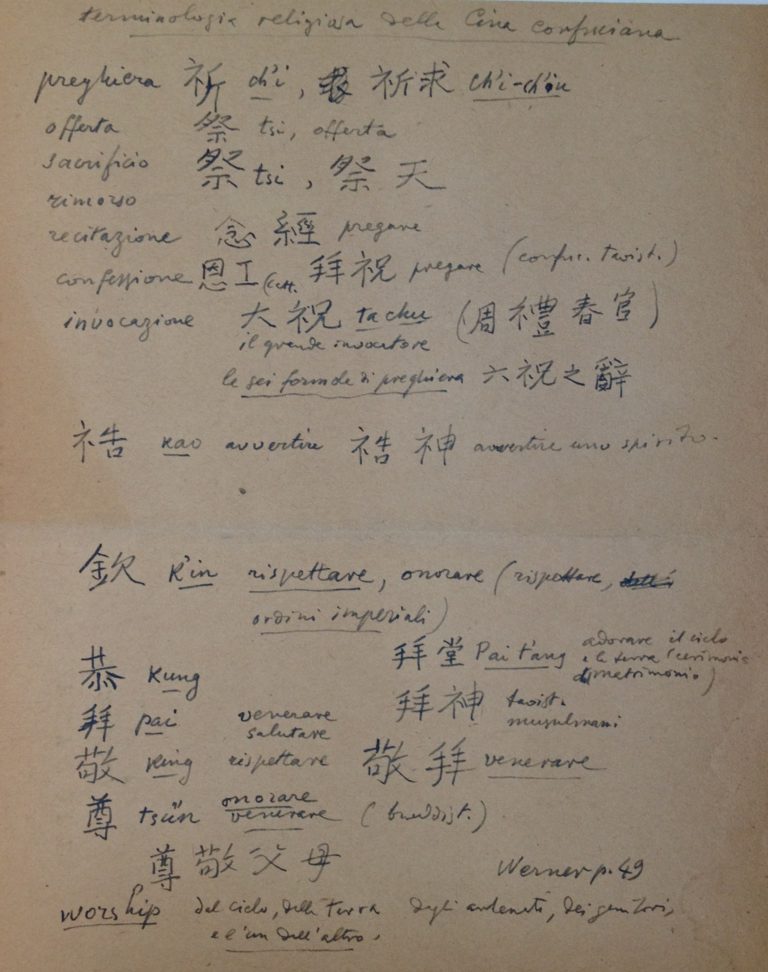 terminologia religiosa della Cina confuciana
preghiera 祈 ch'i, 祈求 ch'i-ch'iu
offerta 祭 tsi, offerta
sacrificio 祭 tsi, 祭天
rimorso
recitazione 念經 pregare
confessione 恩工 (catt. 拜祝 pregare (confuc. taoist.)
invocazione 大祝 ta chu (周禮春官)
il grande invocatore
le sei formule di preghiera 六祝之辭
祰 kao avvertire 祰神 avvertire uno spirito.
欽 k'in rispettare, onorare (rispettare,
ordini imperiali)
恭 kung 拜堂 Pai t'ang adorare il cielo
e la terra (cerimonia
di matrimonio)
拜 pai venerare
salutare 拜神 taoist.
musulmani
敬 king rispettare 敬拜 venerare
尊 tsün onorare
venerare (buddist.)
尊敬父母 Werner p. 49
worship del cielo, della terra degli antenati, dei genitori,
e l'un dell'altro.